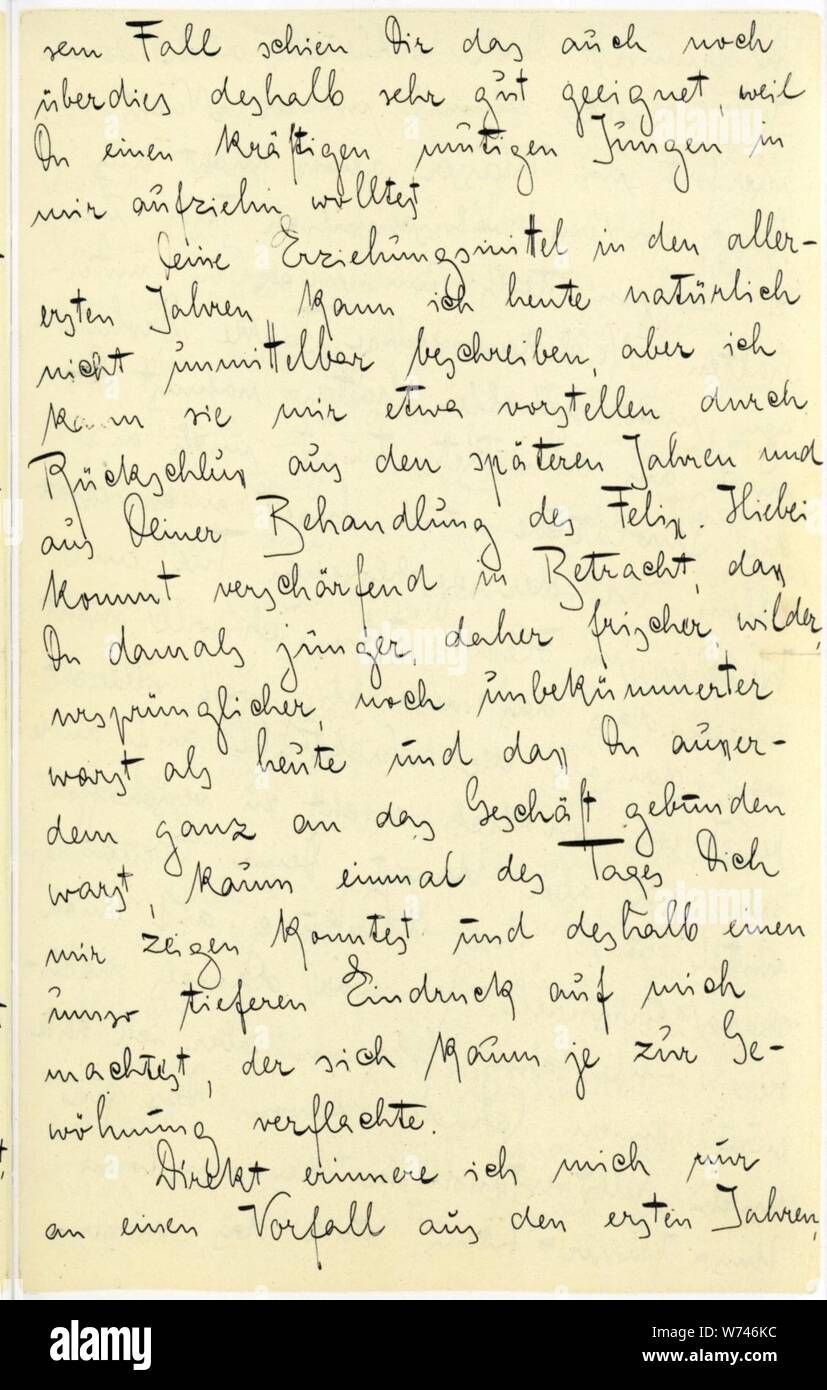 sem Fall schien Dir das auch noch
überdies deshalb sehr gut geeignet, weil
Du einen kräftigen mutigen Jungen in
mir aufziehn wolltest
Deine Erziehungsmittel in den aller-
ersten Jahren kann ich heute natürlich
nicht unmittelbar beschreiben, aber ich
kann sie mir etwa vorstellen durch
Rückschluss aus den späteren Jahren und
aus Deiner Behandlung des Felix. Hiebei
kommt verschärfend in Betracht, dass
Du damals jünger, daher frischer, wilder,
ursprünglicher, noch unbekümmerter
warst als heute und dass Du ausser-
dem ganz an das Geschäft gebunden
warst, kaum einmal des Tages Dich
mir zeigen konntest und deshalb einen
umso tieferen Eindruck auf mich
machtest, der sich kaum je zur Ge-
wöhnung verflachte.
Direkt erinnere ich mich nur
an einen Vorfall aus den ersten Jahren,
alamy
Image ID: W746KC
www.alamy.com